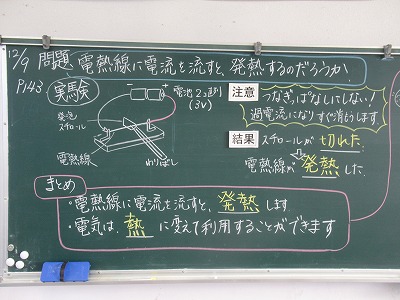 12/9 問題 電熱線に電流を流すと、発熱するのだろうか
P143
実験
電池2コ直列
(3V)
発泡
スチロール
電熱線
わりばし
注意
つなぎっぱなしにしない!
過電流になりすぐ消もうします
結果
スチロールが 切れた。
電熱線が 発熱 した。
まとめ
・電熱線に電流を流すと、発熱 します
・電気は、熱 に変えて利用することができます